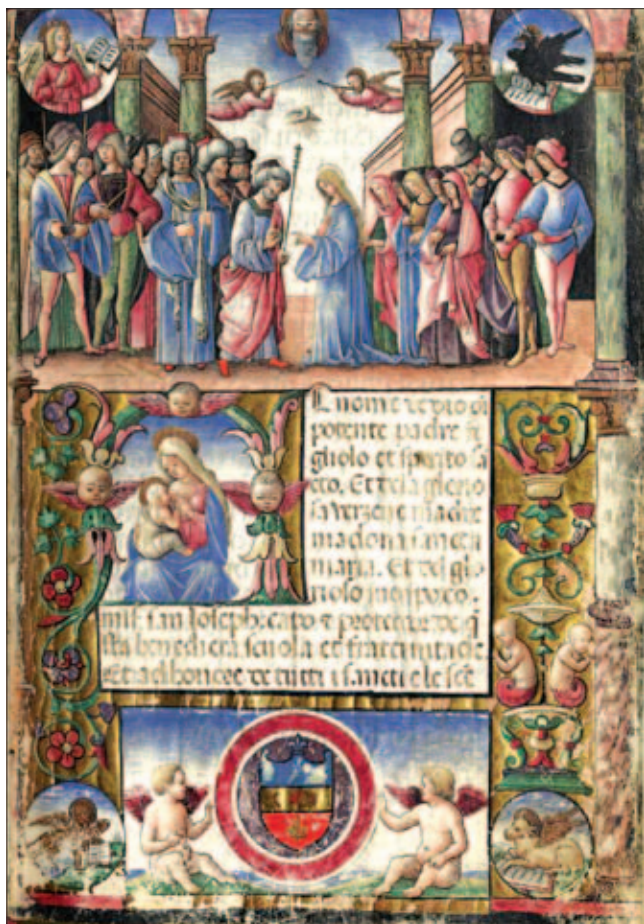 L nome de dio oi
potente padre fi
gliolo et spirito sa
cto. Et dela glorio
sa verzene madre
madona sancta
maria. Et del glo
rioso
san Joseph: capo & protectore de q
sta benedecta scuola et fraternita
Et ad honore de tutti i sancti e le